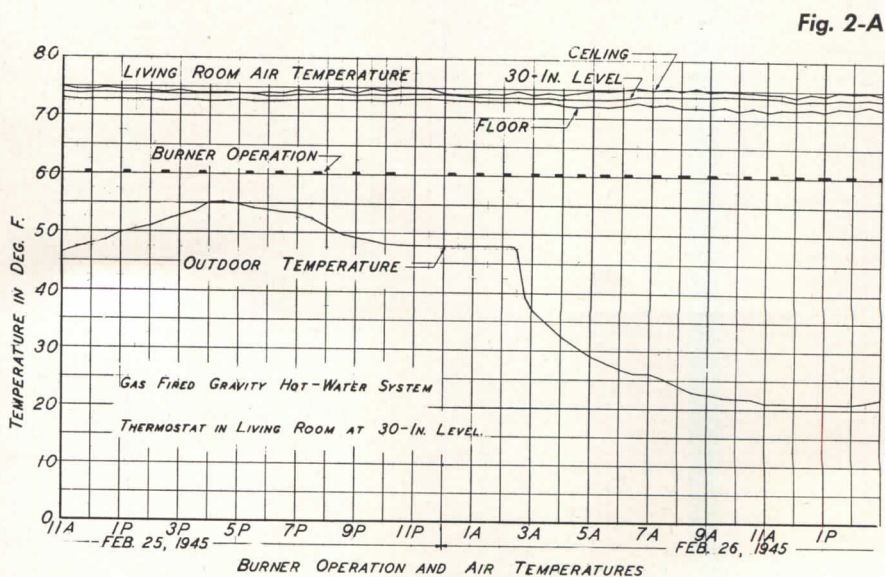 Fig. 2-A
80
70
60
50
40
30
20
10
0
TEMPERATURE IN DEG. F.
LIVING ROOM AIR TEMPERATURE
CEILING
30-IN. LEVEL
FLOOR
BURNER OPERATION
OUTDOOR TEMPERATURE
GAS FIRED GRAVITY HOT-WATER SYSTEM
THERMOSTAT IN LIVING ROOM AT 30-IN. LEVEL.
11A 1P 3P 5P 7P 9P 11P 1A 3A 5A 7A 9A 11A 1P
FEB. 25, 1945 FEB. 26, 1945
BURNER OPERATION AND AIR TEMPERATURES